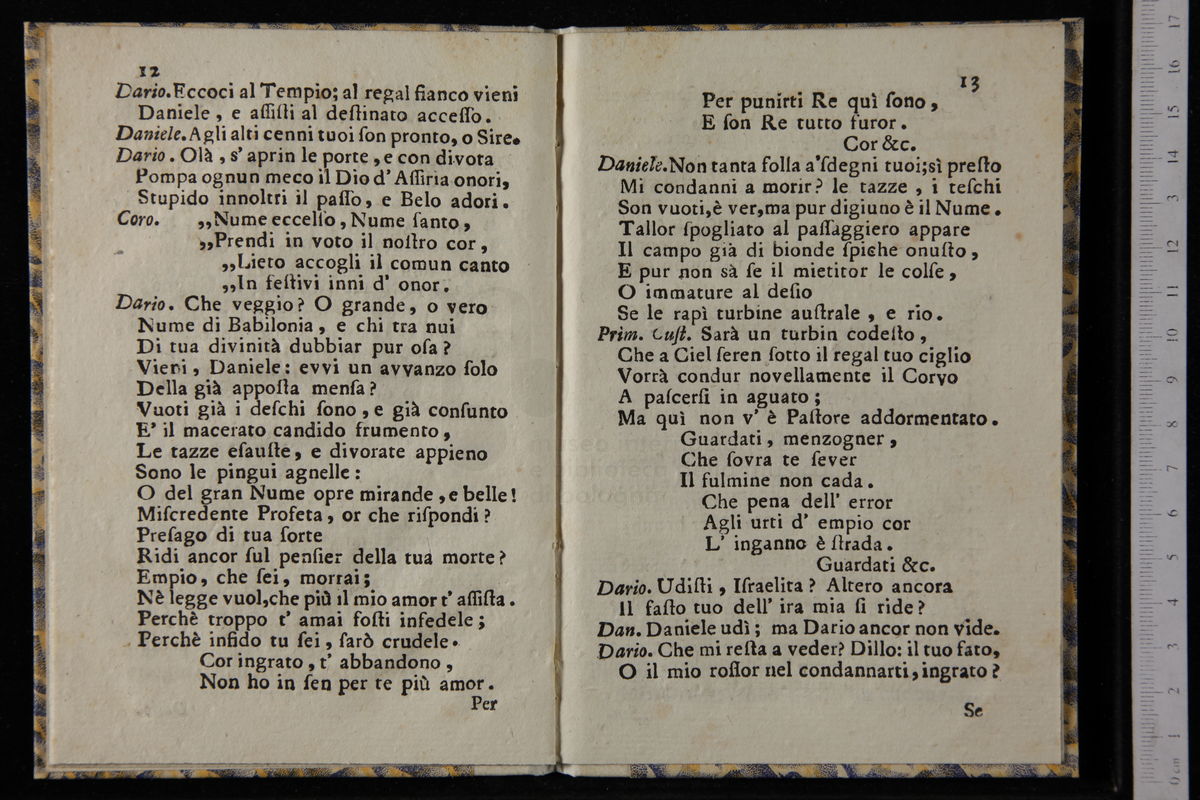 12
Dario. Eccoci al Tempio; al regal fianco vieni
Daniele, e aſſiſti al deſtinato acceſſo.
Daniele. Agli alti cenni tuoi ſon pronto, o Sire.
Dario. Olà, s' aprin le porte, e con divota
Pompa ognun meco il Dio d' Aſſiria onori,
Stupido innoltri il paſſo, e Belo adori.
Coro. ,,Nume eccelſo, Nume ſanto,
,,Prendi in voto il noſtro cor,
,,Lieto accogli il comun canto
,,In feſtivi inni d' onor.
Dario. Che veggio? O grande, o vero
Nume di Babilonia, e chi tra nui
Di tua divinità dubbiar pur oſa?
Vieni, Daniele: evvi un avvanzo ſolo
Della già appoſta menſa?
Vuoti già i deſchi ſono, e già conſunto
E' il macerato candido frumento,
Le tazze eſauſte, e divorate appieno
Sono le pingui agnelle:
O del gran Nume opre mirande, e belle!
Miſcredente Profeta, or che riſpondi?
Preſago di tua ſorte
Ridi ancor ſul penſier della tua morte?
Empio, che ſei, morrai;
Nè legge vuol, che più il mio amor t' aſſiſta.
Perchè troppo t' amai foſti infedele;
Perchè infido tu ſei, ſarò crudele.
Cor ingrato, t' abbandono,
Non ho in ſen per te più amor.
Per
13
Per punirti Re quì ſono,
E ſon Re tutto furor.
Cor &c.
Daniele. Non tanta folla a' ſdegni tuoi; sì preſto
Mi condanni a morir? le tazze, i teſchi
Son vuoti, è ver, ma pur digiuno è il Nume.
Tallor ſpogliato al paſſaggiero appare
Il campo già di bionde ſpighe onuſto,
E pur non sà ſe il mietitor le colſe,
O immature al deſio
Se le rapì turbine auſtrale, e rio.
Prim. Cuſt. Sarà un turbin codeſto,
Che a Ciel ſeren ſotto il regal tuo ciglio
Vorrà condur novellamente il Corvo
A paſcerſi in aguato;
Ma quì non v' è Paſtore addormentato.
Guardati, menzogner,
Che ſovra te ſever
Il fulmine non cada.
Che pena dell' error
Agli urti d' empio cor
L' inganno è ſtrada.
Guardati &c.
Dario. Udiſti, Iſraelita? Altero ancora
Il faſto tuo dell' ira mia ſi ride?
Dan. Daniele udì; ma Dario ancor non vide.
Dario. Che mi reſta a veder? Dillo: il tuo fato,
O il mio roſſor nel condannarti, ingrato?
Se